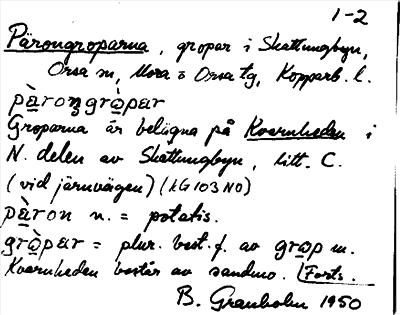 1-2
Pärongroparna, gropar i Skattungbyn,
Orsa sn, Mora o Orsa tg, Kopparb. l.
pä̀roŋgrò̱par
Groparna är belägna på Kvarnheden i
N. delen av Skattungbyn, litt. C.
(vid järnvägen) (LG 103 NO)
pä̀ron n. = potatis.
grò̱par = plur. best. f. av gro̱p m.
Kvarnheden består av sandmo. Forts.
B. Granholm 1950